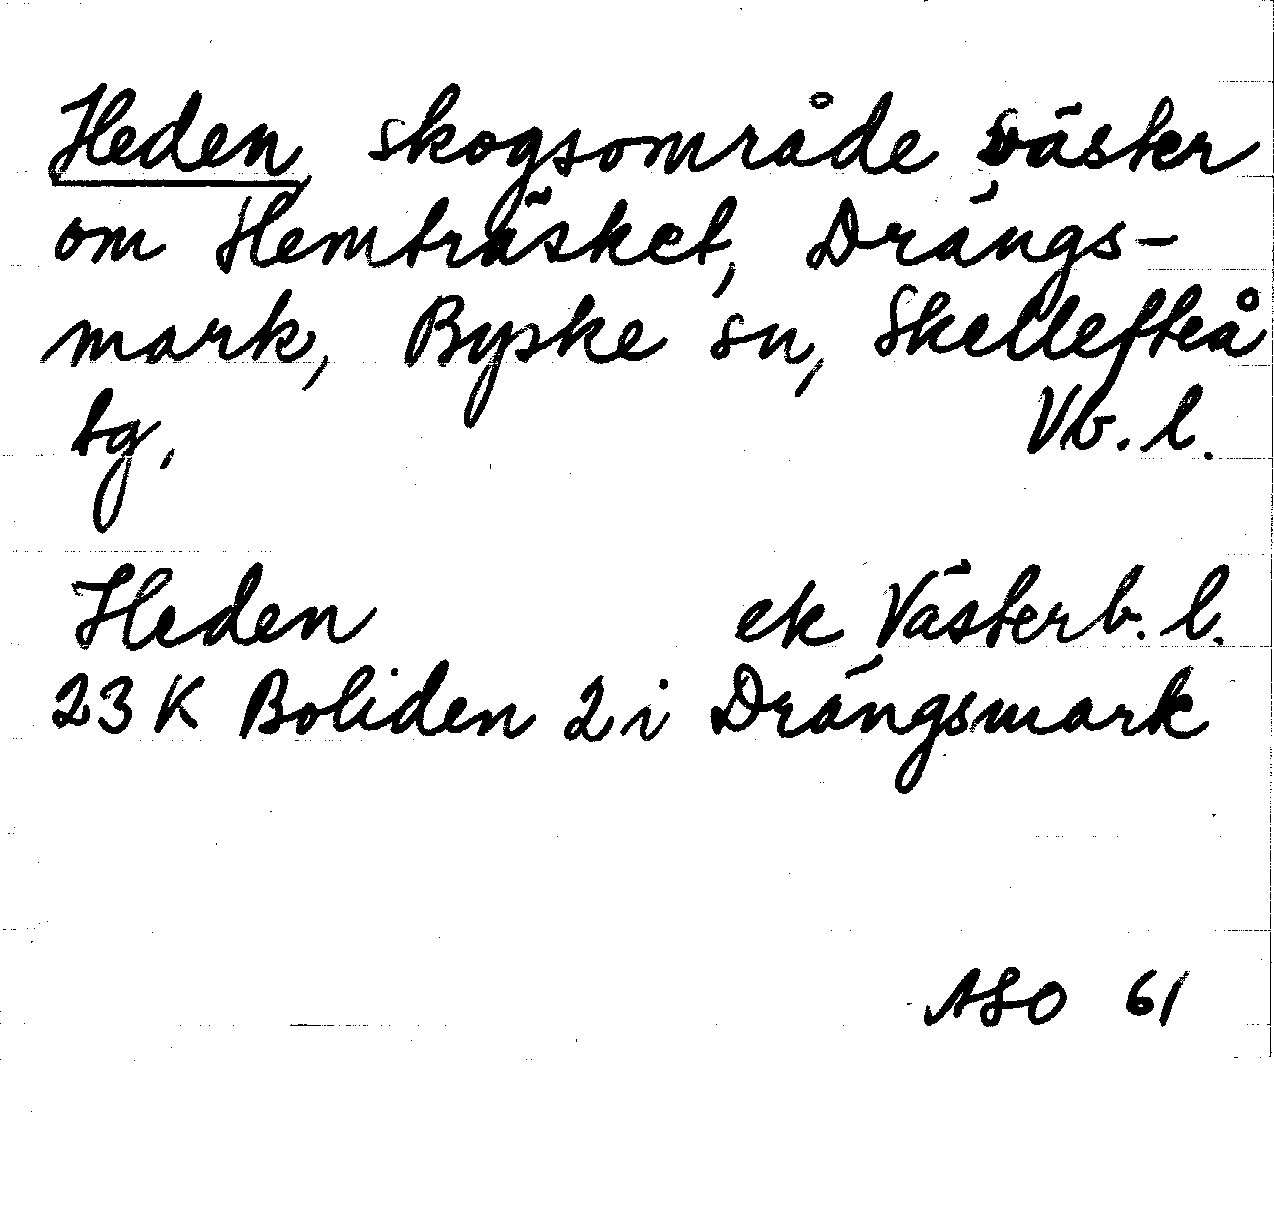 Heden skogsområde väster
om Hemträsket, Drängs-
mark, Byske sn, Skellefteå
tg, Vb. l.
Heden ek Västerb. l.
23 K Boliden 2 i Drängsmark
ASO 61